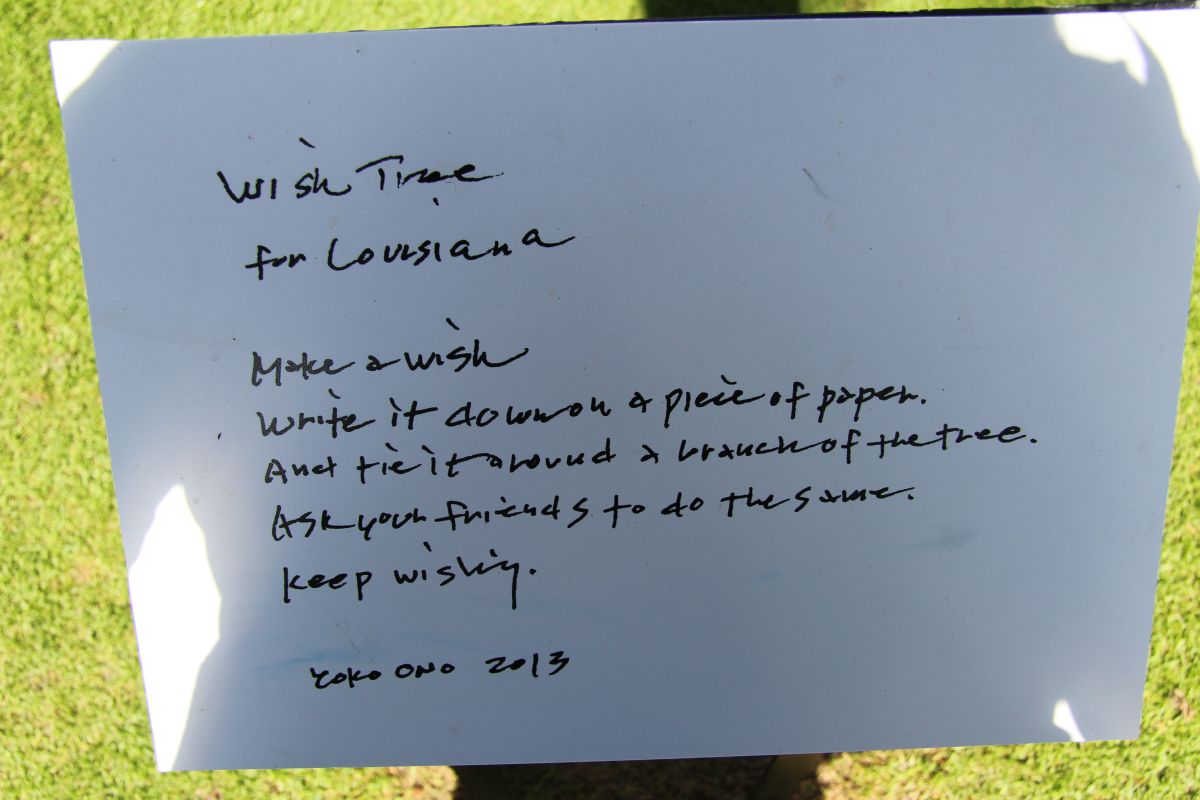 Wish Tree
for Louisiana
Make a wish
Write it down on a piece of paper.
And tie it around a branch of the tree.
Ask your friends to do the same.
keep wishing.
YOKO ONO 2013